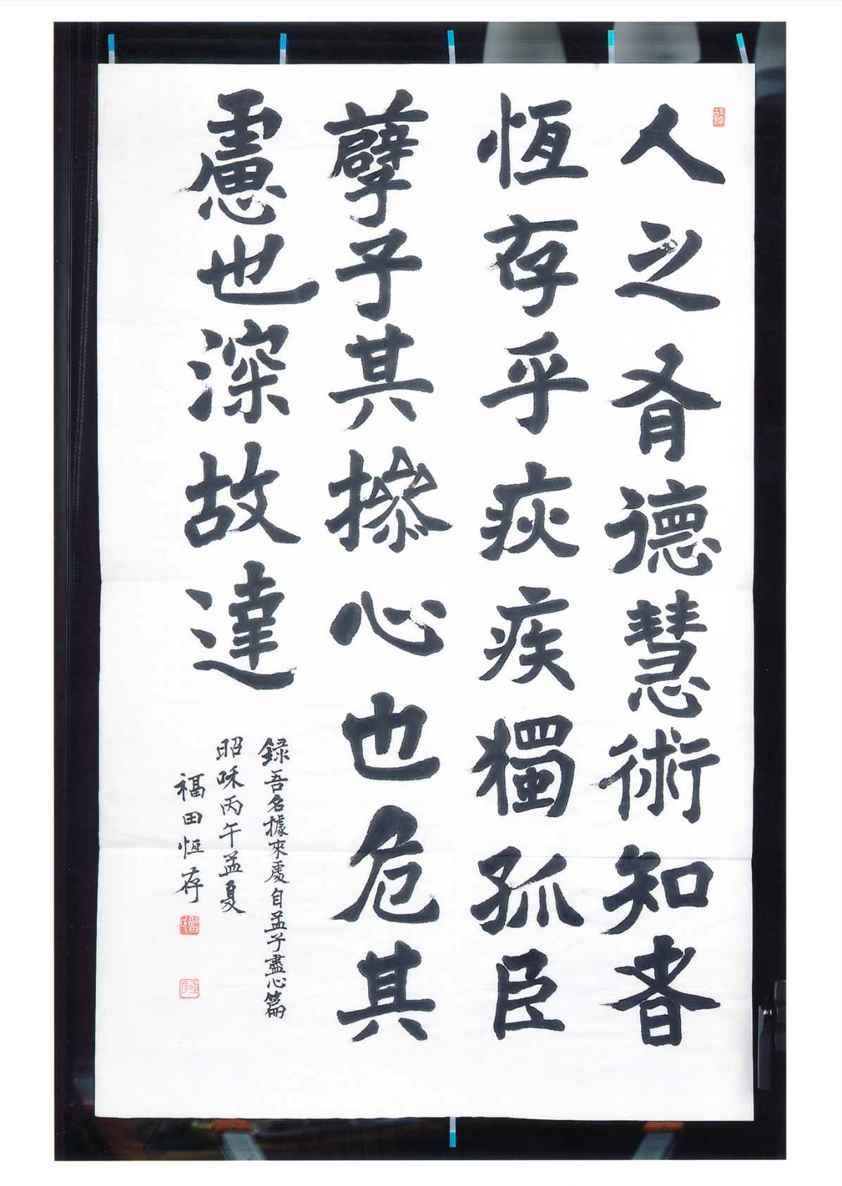 人之有德慧術知者
恆存乎疢疾獨孤臣
孼子其操心也危其
慮也深故達
録吾名據來處自孟子盡心篇
昭和丙午孟夏
福田恆存